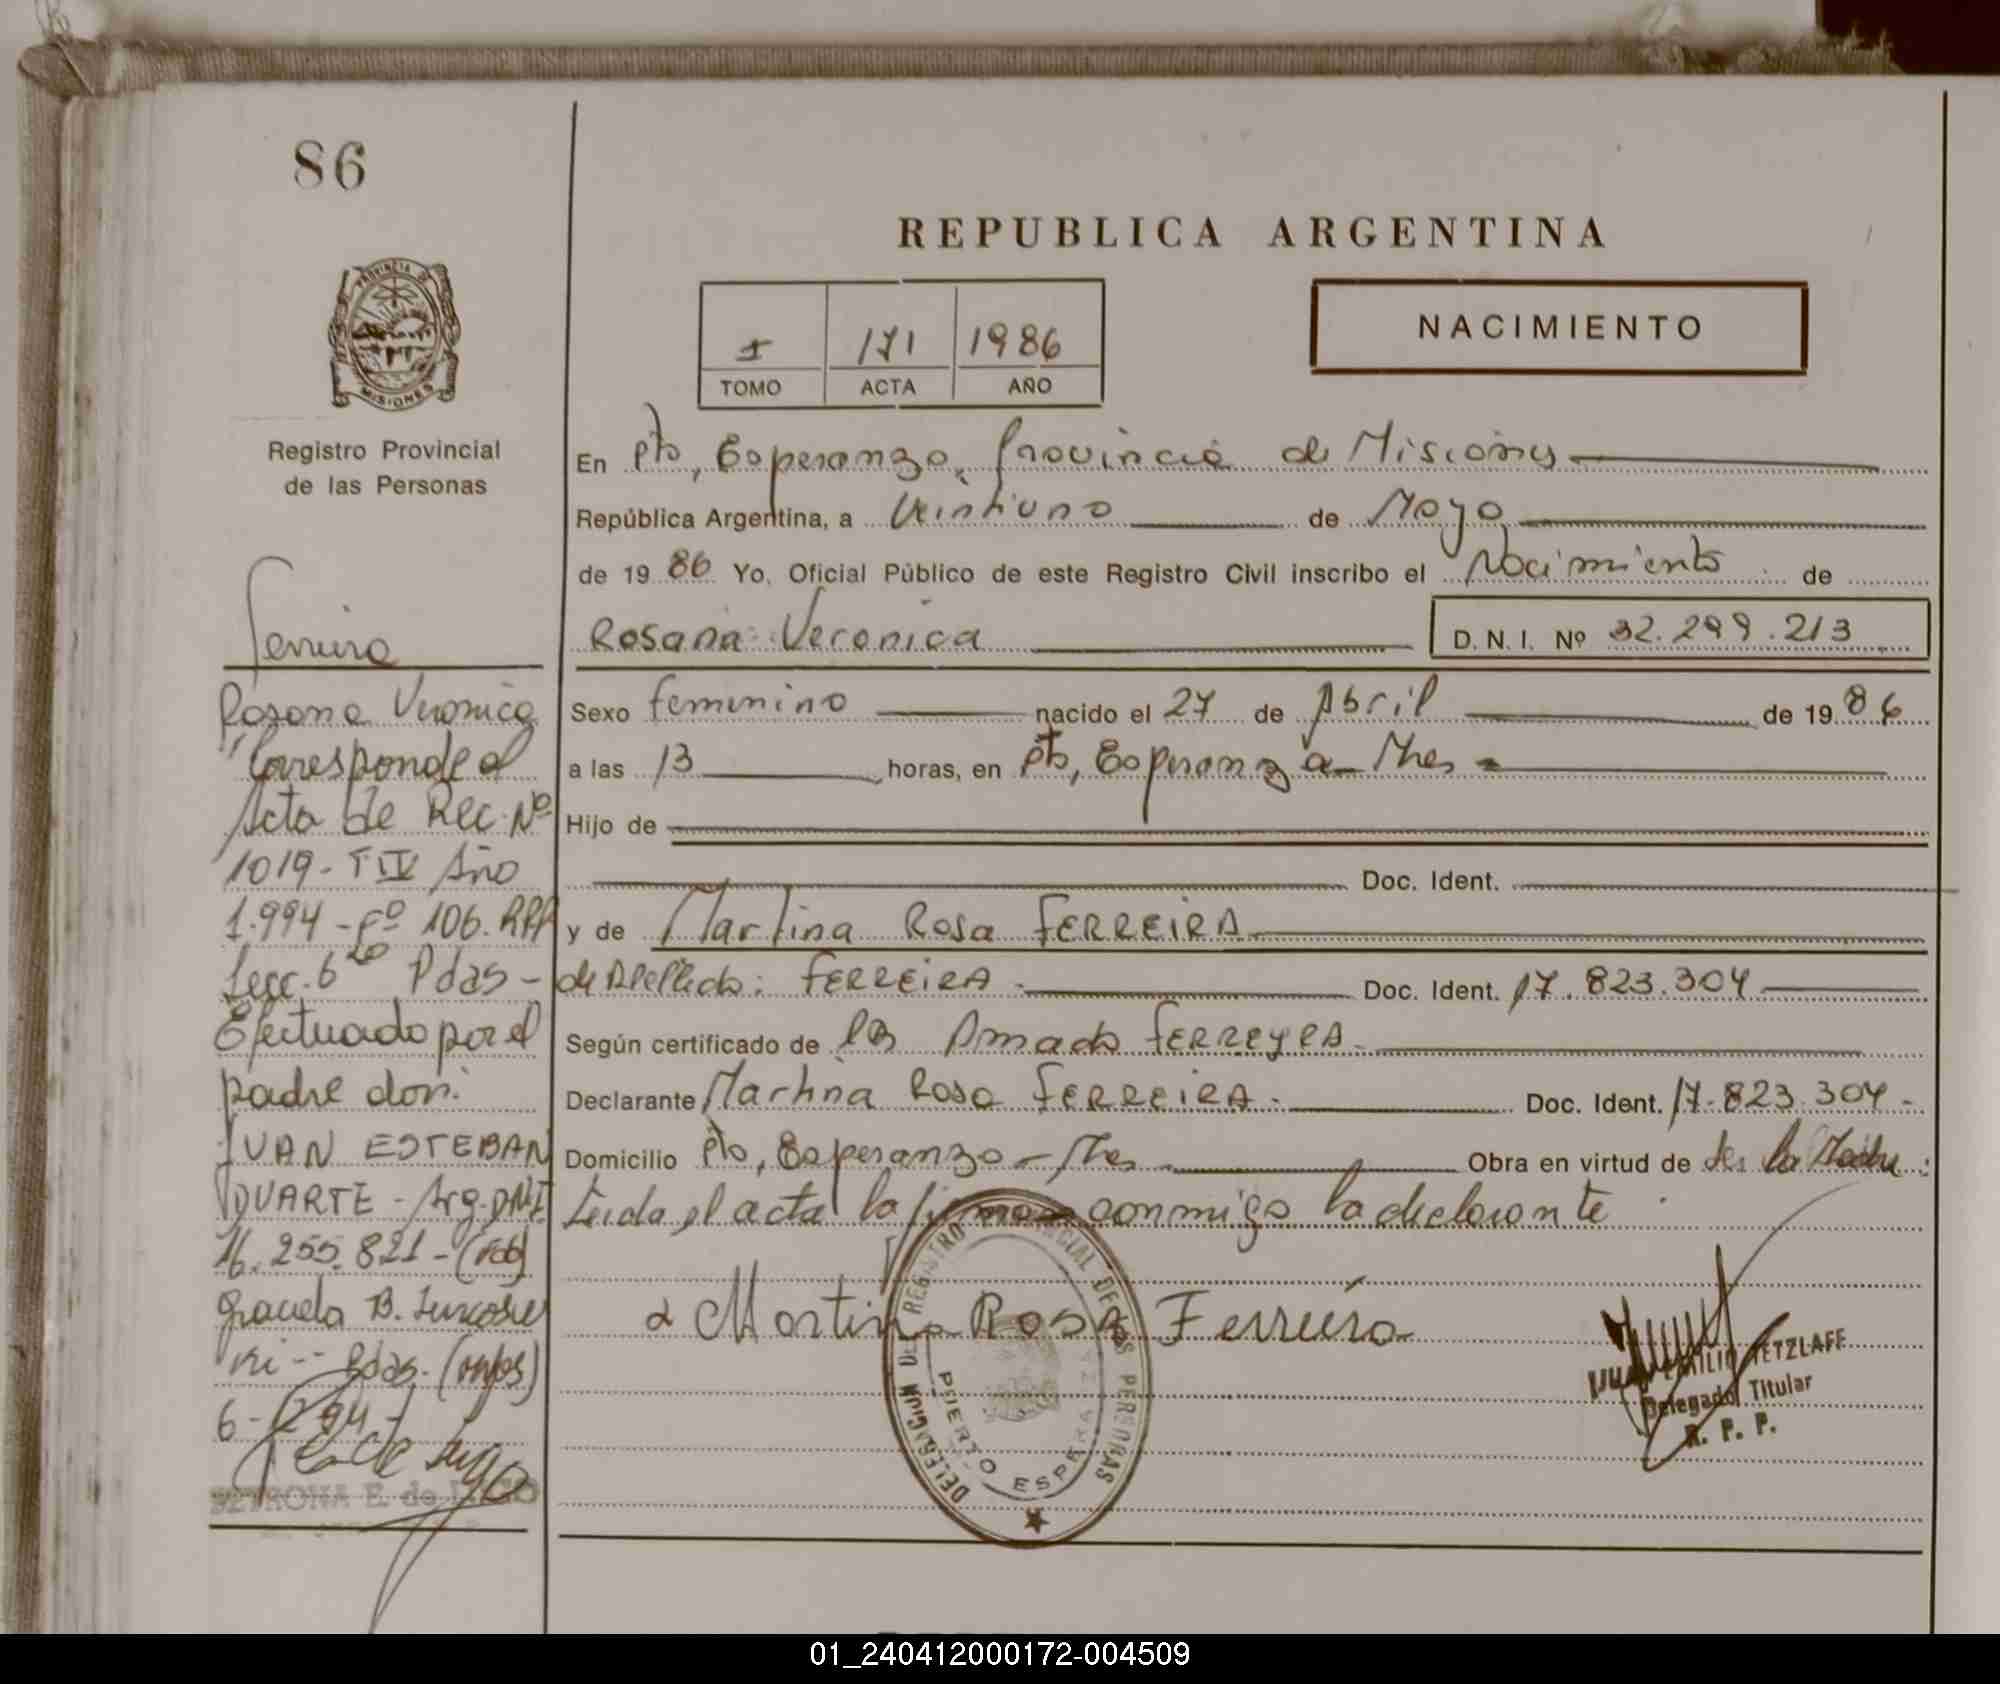 86
PROVINCIA DE
MISIONES
Registro Provincial
de las Personas
Ferreira
Rosana Veronica
Corresponde al
Acta de Rec. Nº
1019 - T IV Año
1.994 - Fº 106. RPP
Secc. 6 Pdas -
Efectuado por el
padre don:
JUAN ESTEBAN
DUARTE - Arg. DNI
16.255.821 -
Graciela B.
Pdas.
6- 94-
PETRONA E. de LUGO
REPUBLICA ARGENTINA
I 171 1986
TOMO ACTA AÑO
NACIMIENTO
En Pto, Esperanza, Provincia de Misiones
República Argentina, a Veintiuno de Mayo
de 19 86 Yo, Oficial Público de este Registro Civil inscribo el Nacimiento de
Rosana Veronica D. N. I. Nº 32.299.213
Sexo femenino nacido el 27 de Abril de 19 86
a las 13 horas, en Pto, Esperanza - Mnes -
Hijo de
Doc. Ident.
y de Martina Rosa FERREIRA
de Apellido: FERREIRA Doc. Ident. 17.823.304
Según certificado de Amado FERREYRA
Declarante Martina Rosa FERREIRA - Doc. Ident. 17.823.304 -
Domicilio Pto, Esperanza - Mnes - Obra en virtud de ser la Madre :
Leida el acta la firma conmigo la declarante
Martina Rosa Ferreira
DELEGACION DEL REGISTRO PROVINCIAL DE LAS PERSONAS
PUERTO ESPERANZA
JUAN EMILIO TETZLAFF
Delegado Titular
R. P. P.
01_240412000172-004509